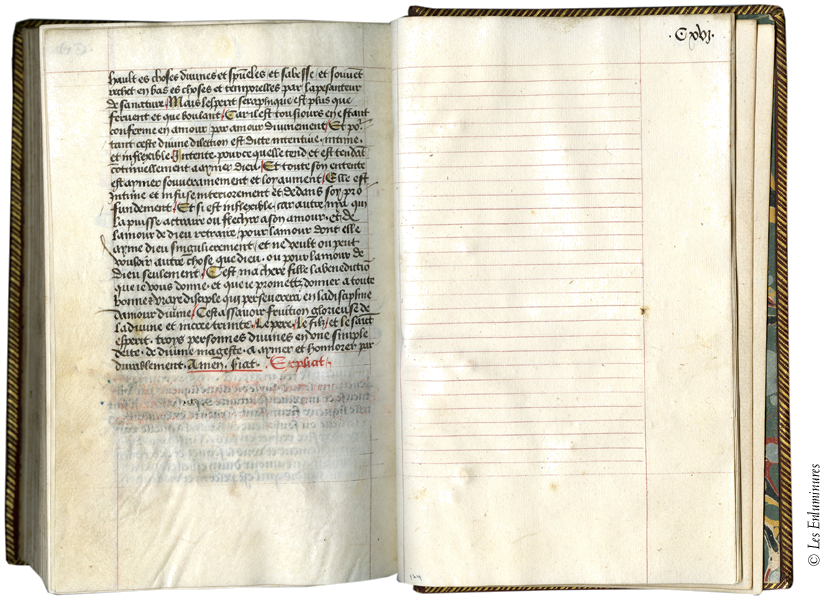 hault es choses divines et spũeles et sabesse et souvēt
rechet en bas es choses et temporelles par la pesanteur
de sa nature / Mais lesperit seraphique est plus que
fervent et que boulant / Car il est tousiours en estant
conforme en amour par amour divinement / Et por
tant ceste divine dilection est dicte intentive intime
et inflexible. Intente pource quelle tend et est tendāt
cōtinuellement a aymer dieu / Et toute son entente
est aymer souverainement et loyaument / Elle est
intime et infuse interiorement et dedans soy pro
fundement / Et si est inflexible car autre nya qui
la puisse actraire ou flechir a son amour et de
lamour de dieu retraire / pour lamour dont elle
ayme dieu singulierement / et ne veult ou peut
vouloir autre chose que dieu ou pour lamour de
dieu seulement / Cest ma chere fille la benedictiō
que ie vous donne et que ie promettz donner a toute
bonne et vraye disciple qui perseverera en la discipline
damour divine / Cest assavoir fruition glorieuse de
la divine et incree trinite / Le pere / le filz / et le saīt
esperit troys personnes divines en une simple
deite de divine mageste a aymer et honnorer par
durablement. Amen. fiat. Explicit.
.Cxvj.
© Les Enluminures